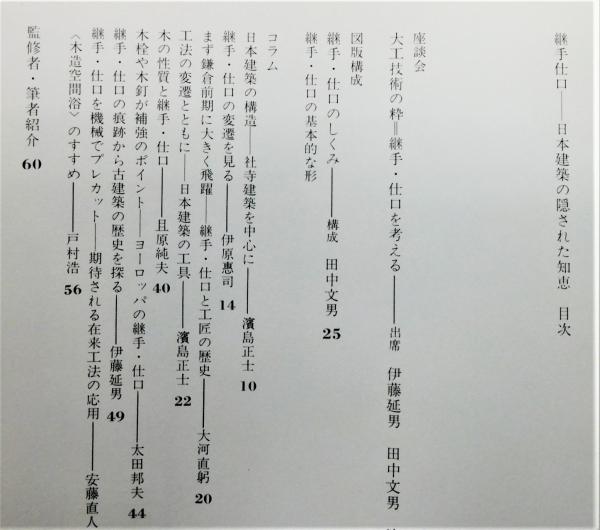 継手仕口——日本建築の隠された知恵　目次
座談会
大工技術の粋＝継手・仕口を考える——出席　伊藤延男　田中文男
図版構成
継手・仕口のしくみ——構成　田中文男 25
継手・仕口の基本的な形
コラム
日本建築の構造——社寺建築を中心に——濱島正士 10
継手・仕口の変遷を見る——伊原惠司 14
まず鎌倉前期に大きく飛躍——継手・仕口と工匠の歴史——大河直躬 20
工法の変遷とともに——日本建築の工具——濱島正士 22
木の性質と継手・仕口——且原純夫 40
木栓や木釘が補強のポイント——ヨーロッパの継手・仕口——太田邦夫 44
継手・仕口の痕跡から古建築の歴史を探る——伊藤延男 49
継手・仕口を機械でプレカット——期待される在来工法の応用——安藤直人
〈木造空間浴〉のすすめ——戸村浩 56
監修者・筆者紹介 60